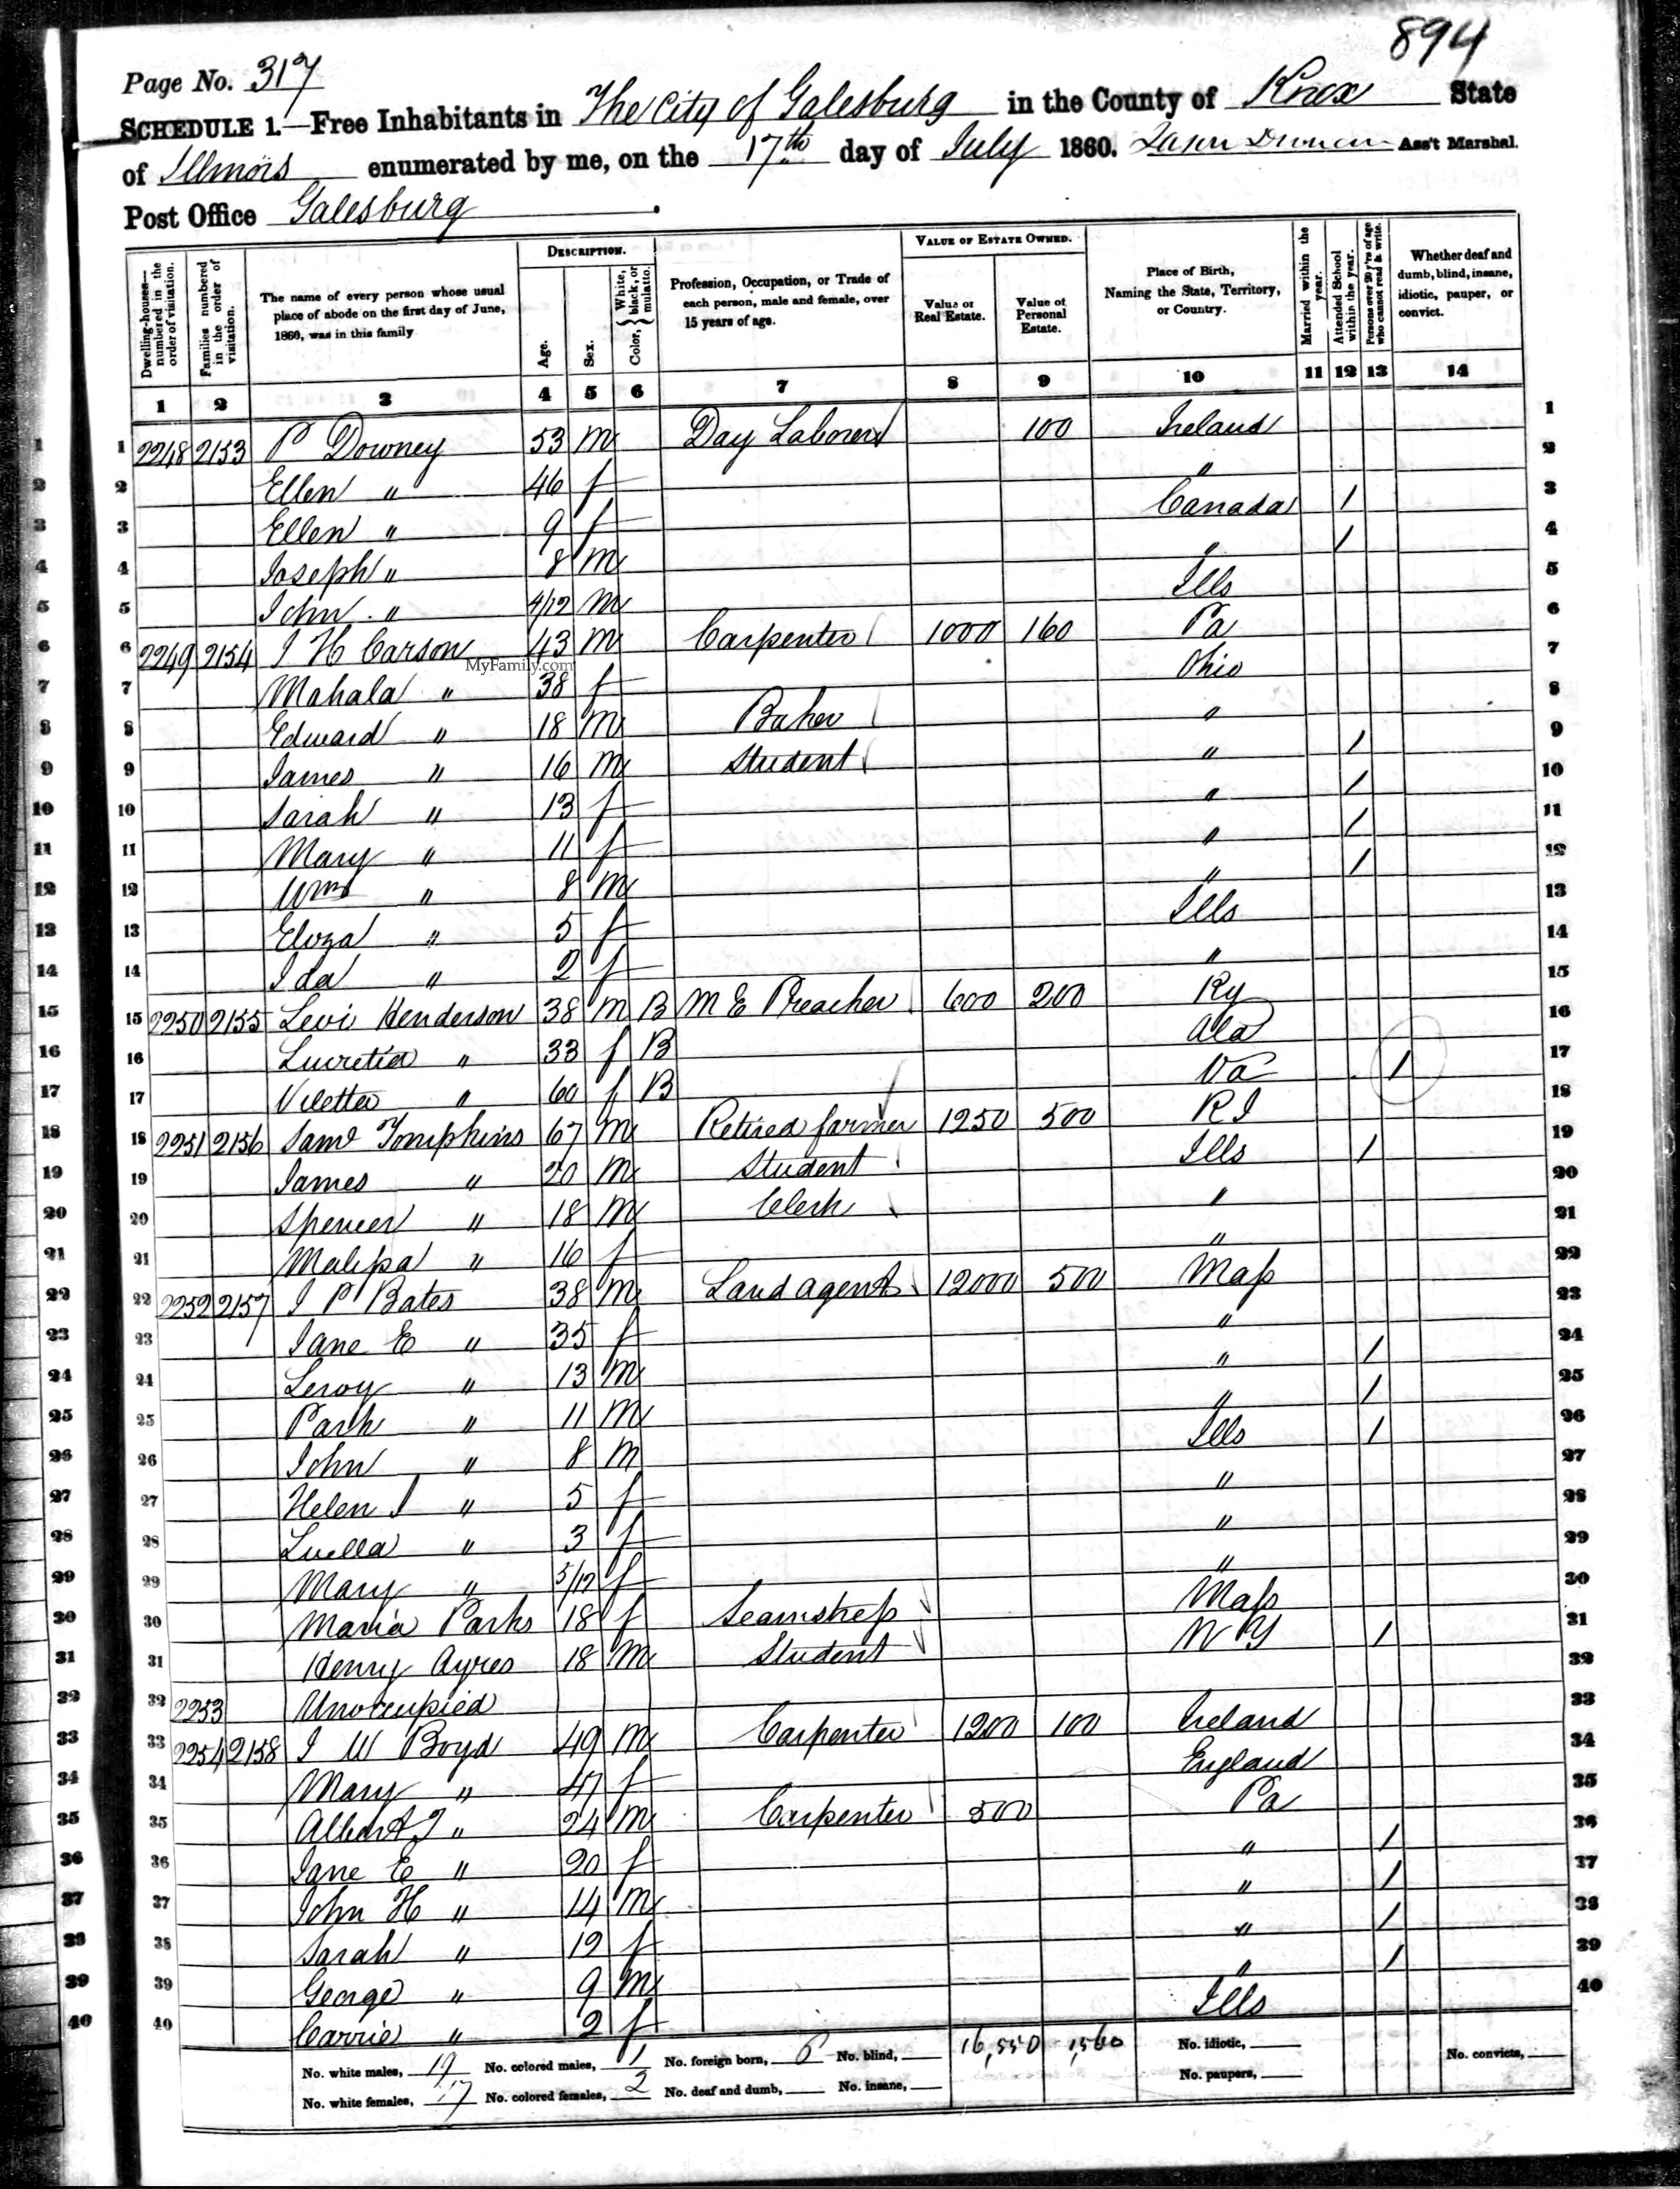 894
Page No. 317
SCHEDULE 1.—Free Inhabitants in The City of Galesburg in the County of Knox State
of Illinois enumerated by me, on the 17th day of July 1860. Ass't Marshal.
Post Office Galesburg.
DESCRIPTION. VALUE OF ESTATE OWNED.
Dwelling-houses—numbered in the order of visitation.
Families numbered in the order of visitation.
The name of every person whose usual place of abode on the first day of June, 1860, was in this family
Age.
Sex.
Color, { White, black, or mulatto.
Profession, Occupation, or Trade of each person, male and female, over 15 years of age.
Value of Real Estate.
Value of Personal Estate.
Place of Birth, Naming the State, Territory, or Country.
Married within the year.
Attended School within the year.
Persons over 20 y'rs of age who cannot read & write.
Whether deaf and dumb, blind, insane, idiotic, pauper, or convict.
1 2 3 4 5 6 7 8 9 10 11 12 13 14
1 2248 2153 P Downey 53 m Day Laborer 100 Ireland 1
2 Ellen " 46 f " 2
3 Ellen " 9 f Canada / 3
4 Joseph " 8 m " / 4
5 John " 4/12 m Ills 5
6 2249 2154 J H Carson 43 m Carpenter 1000 160 Pa 6
MyFamily.com
7 Mahala " 38 f Ohio 7
8 Edward " 18 m Baker " 8
9 James " 16 m Student " / 9
10 Sarah " 13 f " / 10
11 Mary " 11 f " / 11
12 Wm " 8 m " / 12
13 Eliza " 5 f Ills 13
14 Ida " 2 f " 14
15 2250 2155 Levi Henderson 38 m B M E Preacher 600 200 Ky 15
16 Lucretia " 33 f B Ala 16
17 Viletta " 60 f B Va / 17
18 2251 2156 Saml Tompkins 67 m Retired farmer 1250 500 R I 18
19 James " 20 m Student Ills / 19
20 Spencer " 18 m Clerk " 20
21 Malissa " 16 f " 21
22 2252 2157 J P Bates 38 m Land agent 12000 500 Mass 22
23 Jane E " 35 f " 23
24 Leroy " 13 m " / 24
25 Park " 11 m " / 25
26 John " 8 m Ills / 26
27 Helen J " 5 f " 27
28 Luella " 3 f " 28
29 Mary " 5/12 f " 29
30 Maria Parks 18 f Seamstress Mass 30
31 Henry Ayres 18 m Student N Y / 31
32 2253 Unoccupied 32
33 2254 2158 J W Boyd 49 m Carpenter 1200 100 Ireland 33
34 Mary " 47 f England 34
35 Albert J " 24 m Carpenter 500 Pa 35
36 Jane E " 20 f " / 36
37 John H " 14 m " / 37
38 Sarah " 12 f " / 38
39 George " 9 m " / 39
40 Carrie " 2 f Ills 40
No. white males, 19 No. colored males, 1 No. foreign born, 6 No. blind, 16,550 1,560 No. idiotic, No. convicts,
No. white females, 17 No. colored females, 2 No. deaf and dumb, No. insane, No. paupers,